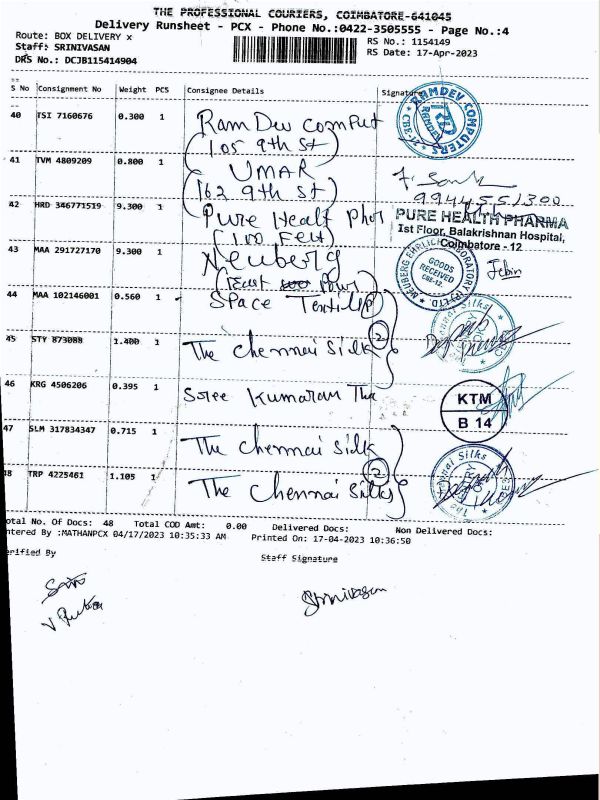 THE PROFESSIONAL COURIERS, COIMBATORE-641045
Delivery Runsheet - PCX - Phone No.:0422-3505555 - Page No.:4
Route: BOX DELIVERY x
RS No.: 1154149
Staff: SRINIVASAN
RS Date: 17-Apr-2023
DRS No.: DCJB115414904
S No Consignment No Weight PCS Consignee Details Signature
40 TSI 7160676 0.300 1 Ram Dev comput
(105 9th St)
RAMDEV COMPUTERS
CBE-12
41 TVM 4809209 0.800 1 UMAR
(162 9th St)
9944551300
42 HRD 346771519 9.300 1 Pure Healt Phar
(100 Feet)
PURE HEALTH PHARMA
Ist Floor, Balakrishnan Hospital,
Coimbatore - 12
43 MAA 291727170 9.300 1 Neuberg
(East Power)
NEUBERG EHRLICH LABORATORY (P) LTD.
GOODS
RECEIVED
CBE-12.
Jebin
44 MAA 102146001 0.560 1 Space Textile
2
45 STY 873088 1.400 1 The Chennai Silk
46 KRG 4506206 0.395 1 Sree Kumaran Tha
KTM
B 14
47 SLM 317834347 0.715 1 The Chennai Silk
2
48 TRP 4225461 1.105 1 The Chennai Silks
The Chennai Silks
Total No. Of Docs: 48 Total COD Amt: 0.00 Delivered Docs: Non Delivered Docs:
ntered By :MATHANPCX 04/17/2023 10:35:33 AM Printed On: 17-04-2023 10:36:50
erified By Staff Signature
Srinivasan